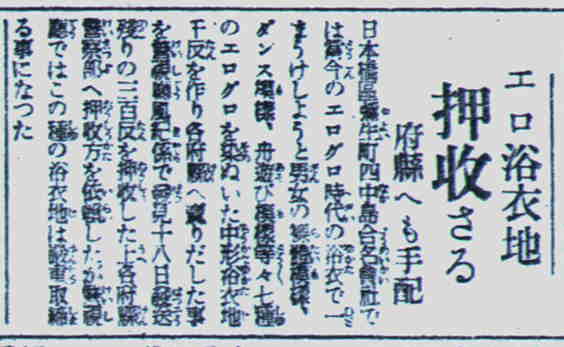 エロ浴衣地
押收さる
府縣へも手配
日本橋區 町四中島合名會社で
は當今のエログロ時代の浴衣で一
まうけしようと男女の 模樣、
ダンス模樣、舟遊び模樣等々七種
のエログロを染ぬいた中形浴衣地
千反を作り各府縣へ賣りだした事
を警視廳風紀係で發見十八日發送
殘りの三百反を押收した上各府縣
警察部へ押收方を依賴したが警視
廳ではこの種の浴衣地は嚴重取締
る事になつた